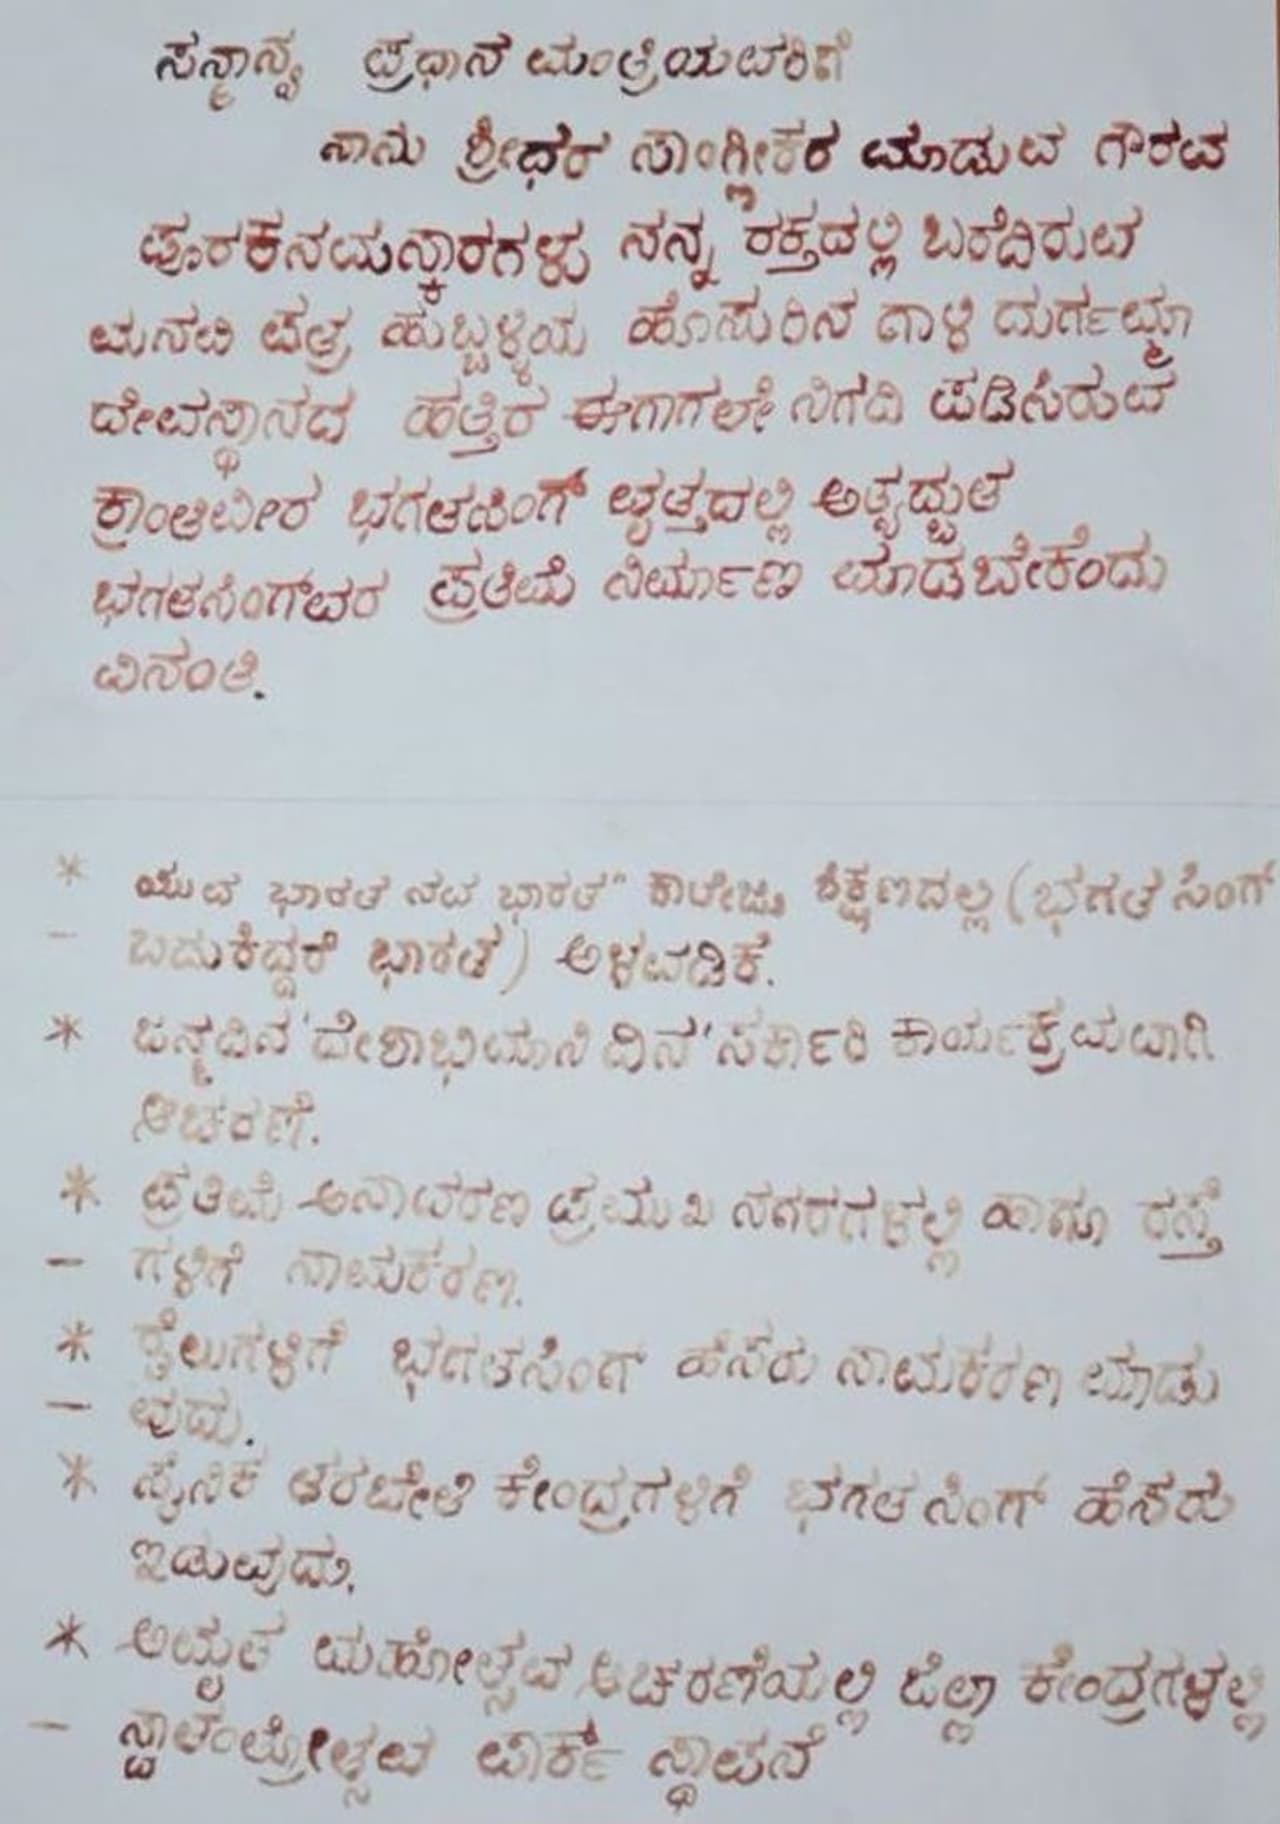 ಸನ್ಮಾನ್ಯ ಪ್ರಧಾನ ಮಂತ್ರಿಯವರಿಗೆ
ನಾನು ಶ್ರೀಧರ ಸಾಂಗ್ಲೀಕರ ಮಾಡುವ ಗೌರವ
ಪೂರಕನಮಸ್ಕಾರಗಳು ನನ್ನ ರಕ್ತದಲ್ಲಿ ಬರೆದಿರುವ
ಮನವಿ ಪತ್ರ ಹುಬ್ಬಳ್ಳಿಯ ಹೊಸುರಿನ ಗಾಳಿ ದುರ್ಗಮ್ಮಾ
ದೇವಸ್ಥಾನದ ಹತ್ತಿರ ಈಗಾಗಲೇ ನಿಗದಿ ಪಡಿಸಿರುವ
ಕ್ರಾಂತಿವೀರ ಭಗತಸಿಂಗ್ ವೃತ್ತದಲ್ಲಿ ಅತ್ಯದ್ಭುತ
ಭಗತಸಿಂಗ್‌ವರ ಪ್ರತಿಮೆ ನಿರ್ಮಾಣ ಮಾಡಬೇಕೆಂದು
ವಿನಂತಿ.
* ಯುವ ಭಾರತ ನವ ಭಾರತ" ಕಾಲೇಜು ಶಿಕ್ಷಣದಲ್ಲಿ (ಭಗತ ಸಿಂಗ್
– ಬದುಕಿದ್ದರೆ ಭಾರತ) ಅಳವಡಿಕೆ.
* ಜನ್ಮದಿನ 'ದೇಶಾಭಿಮಾನಿ ದಿನ' ಸರ್ಕಾರಿ ಕಾರ್ಯಕ್ರಮವಾಗಿ
ಆಚರಣೆ.
* ಪ್ರತಿಮೆ ಅನಾವರಣ ಪ್ರಮುಖ ನಗರಗಳಲ್ಲಿ ಹಾಗೂ ರಸ್ತೆ
– ಗಳಿಗೆ ನಾಮಕರಣ.
* ರೈಲುಗಳಿಗೆ ಭಗತಸಿಂಗ್ ಹೆಸರು ನಾಮಕರಣ ಮಾಡು
– ವುದು.
* ಸೈನಿಕ ತರಬೇತಿ ಕೇಂದ್ರಗಳಿಗೆ ಭಗತ ಸಿಂಗ್ ಹೆಸರು
ಇಡುವುದು.
* ಅಮೃತ ಮಹೋತ್ಸವ ಆಚರಣೆಯಲ್ಲಿ ಜಿಲ್ಲಾ ಕೇಂದ್ರಗಳಲ್ಲಿ
– ಸ್ವಾತಂತ್ರೋತ್ಸವ ಪಾರ್ಕ್ ಸ್ಥಾಪನೆ